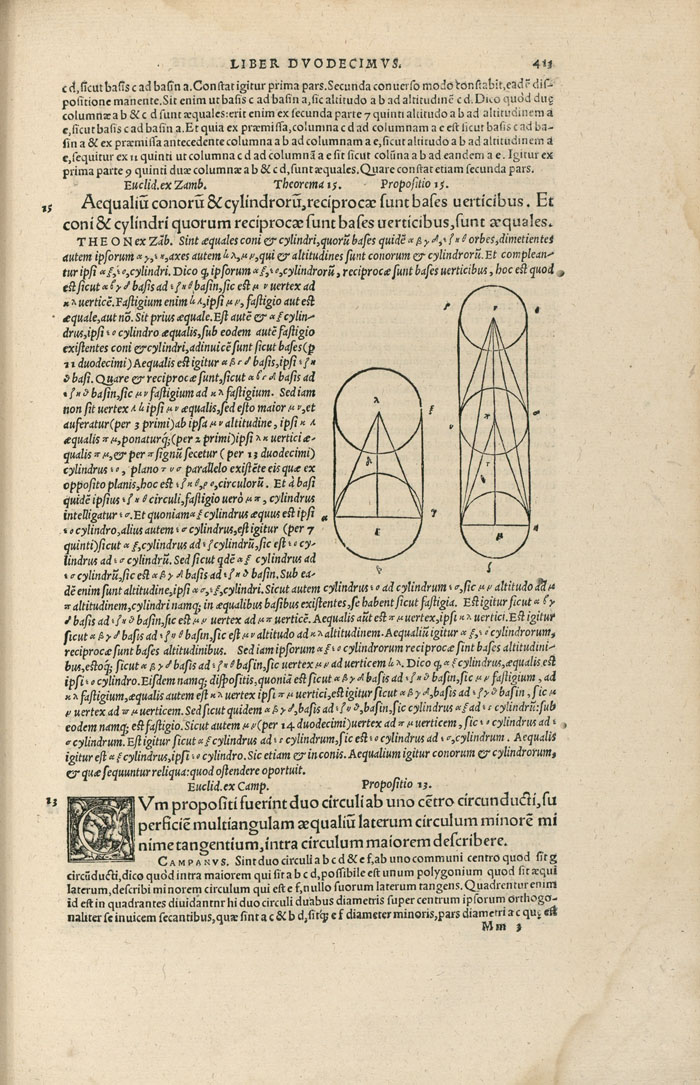 LIBER DVODECIMVS. 413
c d, sicut basis c ad basin a. Constat igitur prima pars. Secunda conuerso modo constabit, eadẽ dis-
positione manente. Sit enim ut basis c ad basin a, sic altitudo a b ad altitudinẽ c d. Dico quòd duę
columnæ a b & c d sunt æquales: erit enim ex secunda parte 7 quinti altitudo a b ad altitudinem a
e, sicut basis c ad basin a. Et quia ex præmissa, columna c d ad columnam a e est sicut basis c ad ba-
sin a & ex præmissa antecedente columna a b ad columnam a e, sicut altitudo a b ad altitudinem a
e, sequitur ex 11 quinti ut columna c d ad columnã a e sit sicut colũna a b ad eandem a e. Igitur ex
prima parte 9 quinti duæ columnæ a b & c d, sunt æquales. Quare constat etiam secunda pars.
Euclid. ex Zamb. Theorema 15. Propositio 15.
15 Aequaliũ conorũ & cylindrorũ, reciprocæ sunt bases uerticibus. Et
coni & cylindri quorum reciprocæ sunt bases uerticibus, sunt æquales.
THEON ex Zãb. Sint æquales coni & cylindri, quorũ bases quidẽ α β γ δ, ε ζ η θ orbes, dimetientes
autem ipsorum α γ, ε η, axes autem κ λ, μ ν, qui & altitudines sunt conorum & cylindrorũ. Et complean-
tur ipsi α ξ, ε ο, cylindri. Dico q, ipsorum α ξ, ε ο, cylindrorũ, reciprocæ sunt bases uerticibus, hoc est quod
est sicut α β γ δ basis ad ε ζ η θ basin, sic est μ ν uertex ad
κ λ uerticẽ. Fastigium enim κ λ, ipsi μ ν, fastigio aut est
æquale, aut nõ. Sit prius æquale. Est autẽ & α ξ cylin-
drus, ipsi ε ο cylindro æqualis, sub eodem autẽ fastigio
existentes coni & cylindri, adinuicẽ sunt sicut bases (p
11 duodecimi) Aequalis est igitur α β γ δ basis, ipsi ε ζ η
θ basi. Quare & reciprocæ sunt, sicut α β γ δ basis ad
ε ζ η θ basin, sic μ ν fastigium ad κ λ fastigium. Sed iam
non sit uertex κ λ ipsi μ ν æqualis, sed esto maior μ ν, et
auferatur (per 3 primi) ab ipsa μ ν altitudine, ipsi κ λ
æqualis π μ, ponaturq; (per 2 primi) ipsi λ κ uertici æ-
qualis π μ, & per π signũ secetur (per 13 duodecimi)
cylindrus ε ο, plano τ υ σ parallelo existẽte eis quæ ex
opposito planis, hoc est ε ζ η θ, ρ ο, circulorũ. Et à basi
quidẽ ipsius ε ζ η θ circuli, fastigio uerò μ π, cylindrus
intelligatur ε σ. Et quoniam α ξ cylindrus æquus est ipsi
ε ο cylindro, alius autem ε σ cylindrus, est igitur (per 7
quinti) sicut α ξ, cylindrus ad ε σ cylindrũ, sic est ε ο cy-
lindrus ad ε σ cylindrũ. Sed sicut qdẽ α ξ cylindrus ad
ε σ cylindrũ, sic est α β γ δ basis ad ε ζ η θ basin. Sub ea-
dẽ enim sunt altitudine, ipsi α ξ, ε σ, cylindri. Sicut autem cylindrus ε ο ad cylindrum ε σ, sic μ ν altitudo ad μ
π altitudinem, cylindri namq; in æqualibus basibus existentes, se habent sicut fastigia. Est igitur sicut α β γ
δ basis ad ε ζ η θ basin, sic est μ ν uertex ad μ π uerticẽ. Aequalis aũt est π μ uertex, ipsi κ λ uertici. Est igitur
sicut α β γ δ basis ad ε ζ η θ basin, sic est μ ν altitudo ad κ λ altitudinem. Aequaliũ igitur α ξ, ε ο cylindrorum,
reciprocæ sunt bases altitudinibus. Sed iam ipsorum α ξ ε ο cylindrorum reciprocæ sint bases altitudini-
bus, estoq; sicut α β γ δ basis ad ε ζ η θ basin, sic uertex μ ν ad uerticem κ λ. Dico q, α ξ cylindrus, æqualis est
ipsi ε ο cylindro. Eisdem namq; dispositis, quoniã est sicut α β γ δ basis ad ε ζ η θ basin, sic μ ν fastigium, ad
κ λ fastigium, æqualis autem est κ λ uertex ipsi π μ uertici, est igitur sicut α β γ δ, basis ad ε ζ η θ basin, sic μ
ν uertex ad π μ uerticem. Sed sicut quidem α β γ δ, basis ad ε ζ η θ, basin, sic cylindrus α ξ ad ε σ cylindrũ: sub
eodem namq; est fastigio. Sicut autem μ ν (per 14 duodecimi) uertex ad μ π uerticem, sic ε ο cylindrus ad ε
σ cylindrum. Est igitur sicut α ξ cylindrus ad ε σ cylindrum, sic est ε ο cylindrus ad ε σ, cylindrum. Aequalis
igitur est α ξ cylindrus, ipsi ε ο cylindro. Sic etiam & in conis. Aequalium igitur conorum & cylindrorum,
& quæ sequuntur reliqua: quod ostendere oportuit.
Euclid. ex Camp. Propositio 13.
13 CVm propositi fuerint duo circuli ab uno cẽtro circunducti, su
perficiẽ multiangulam æqualiũ laterum circulum minorẽ mi
nime tangentium, intra circulum maiorem describere.
CAMPANVS. Sint duo circuli a b c d & e f, ab uno communi centro quod sit g
circũducti, dico quòd intra maiorem qui sit a b c d, possibile est unum polygonium quod sit æqui
laterum, describi minorem circulum qui est e f, nullo suorum laterum tangens. Quadrentur enim
id est in quadrantes diuidantur hi duo circuli duabus diametris super centrum ipsorum orthogo-
naliter se inuicem secantibus, quæ sint a c & b d, sitq; e f diameter minoris, pars diametri a c quę est
Mm 3